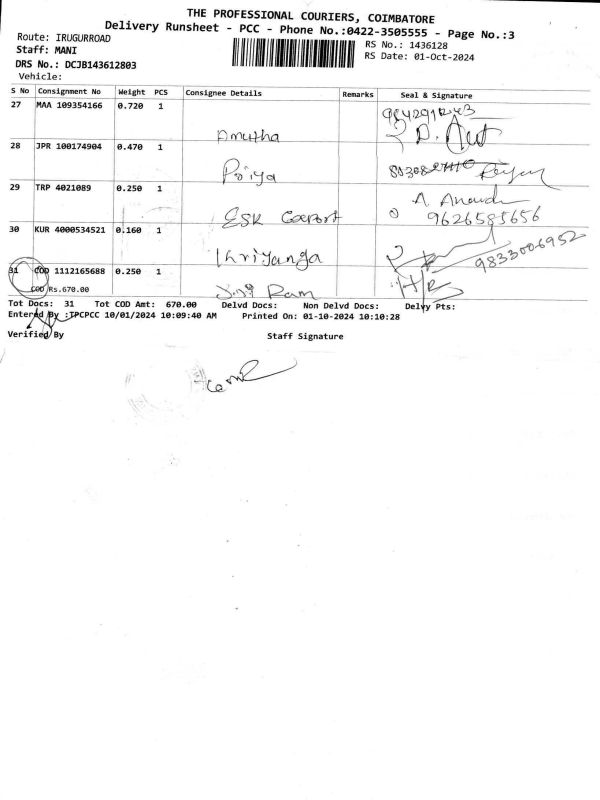 THE PROFESSIONAL COURIERS, COIMBATORE
Delivery Runsheet - PCC - Phone No.:0422-3505555 - Page No.:3
Route: IRUGURROAD
RS No.: 1436128
Staff: MANI
RS Date: 01-Oct-2024
DRS No.: DCJB143612803
Vehicle:
S No Consignment No Weight PCS Consignee Details Remarks Seal & Signature
27 MAA 109354166 0.720 1
Amutha
28 JPR 100174904 0.470 1
Priya
29 TRP 4021089 0.250 1 A. Anand
ESK Export 9626585656
30 KUR 4000534521 0.160 1
Kriyanga 9833006952
31 COD 1112165688 0.250 1
COD Rs.670.00 Ram
Tot Docs: 31 Tot COD Amt: 670.00 Delvd Docs: Non Delvd Docs: Delvy Pts:
Entered By :TPCPCC 10/01/2024 10:09:40 AM Printed On: 01-10-2024 10:10:28
Verified By Staff Signature